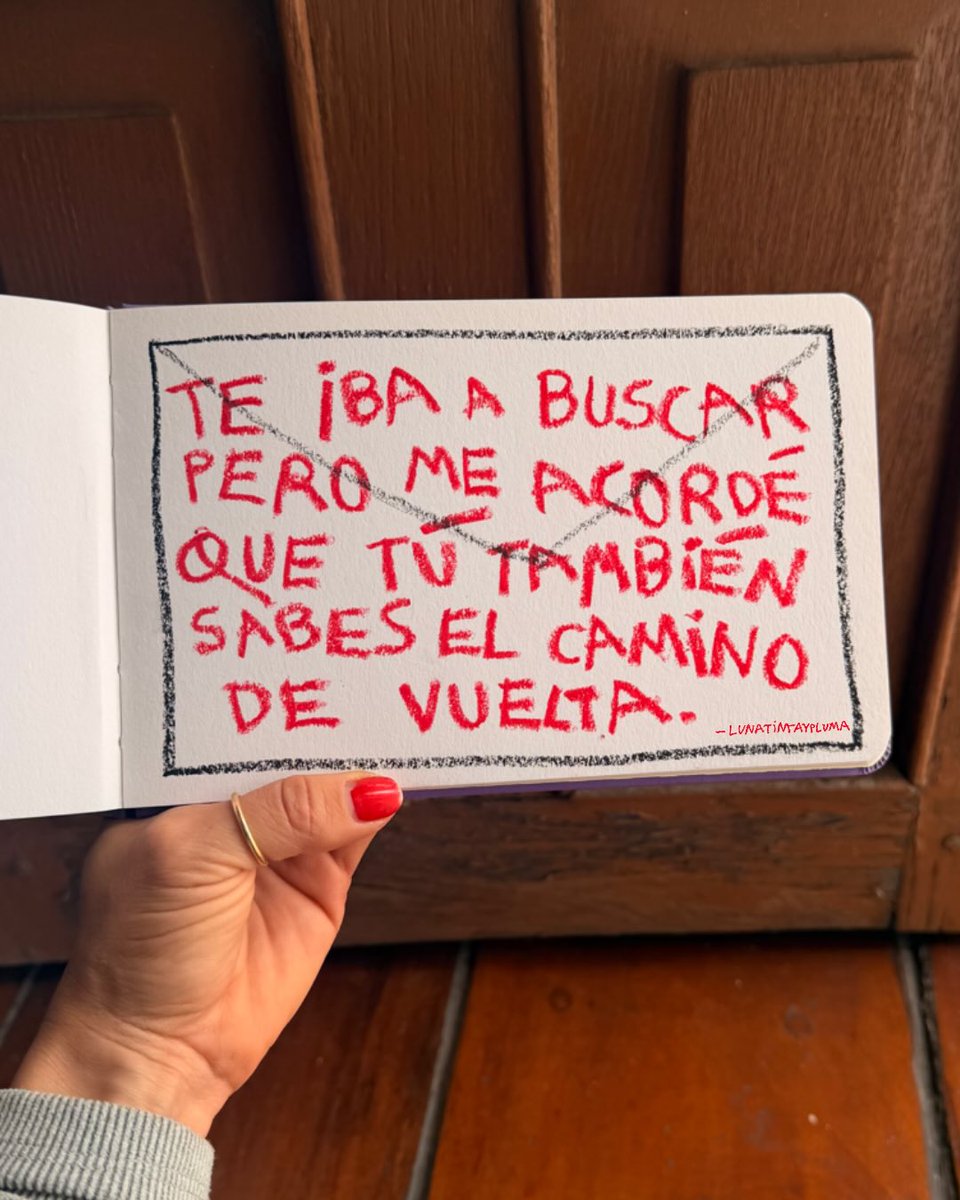 TE iBA A BUSCAR
PERO ME ACORDÉ
QUE TÚ TAMBIÉN
SABES EL CAMiNO
DE VUELTA.
-LUNATiNTAYPLUMA